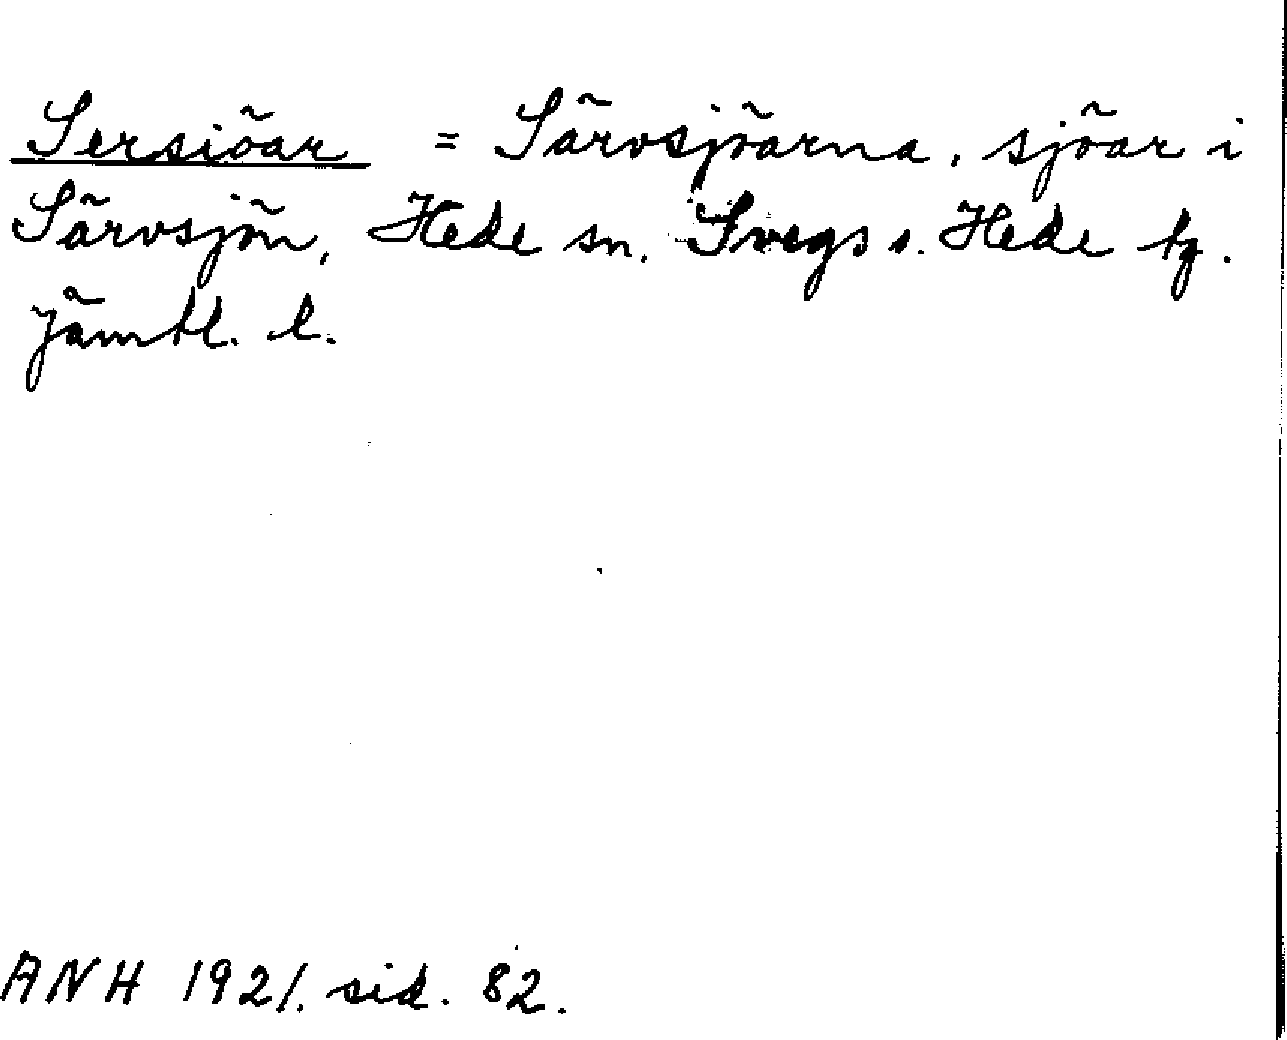 Sersiöar = Särvsjöarna, sjöar i
Särvsjön, Hede sn. Svegs o. Hede tg.
Jämtl. l.
ANH 1921. sid. 82.